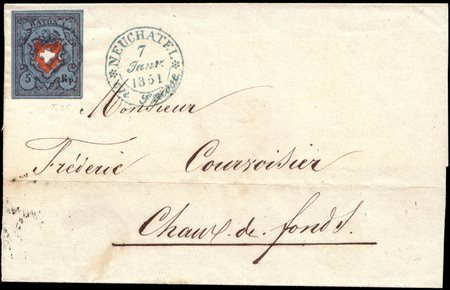 RAYON I
5 Rp.
NEUCHATEL
7
Janv.
1851
Suisse
Monsieur
Fréderic Courvoisier
Chaux-de-fonds.